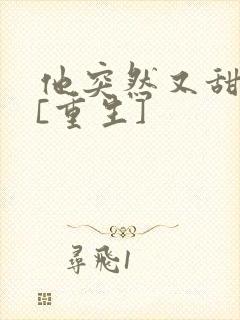 他突然又甜
[重生]
尋飛1